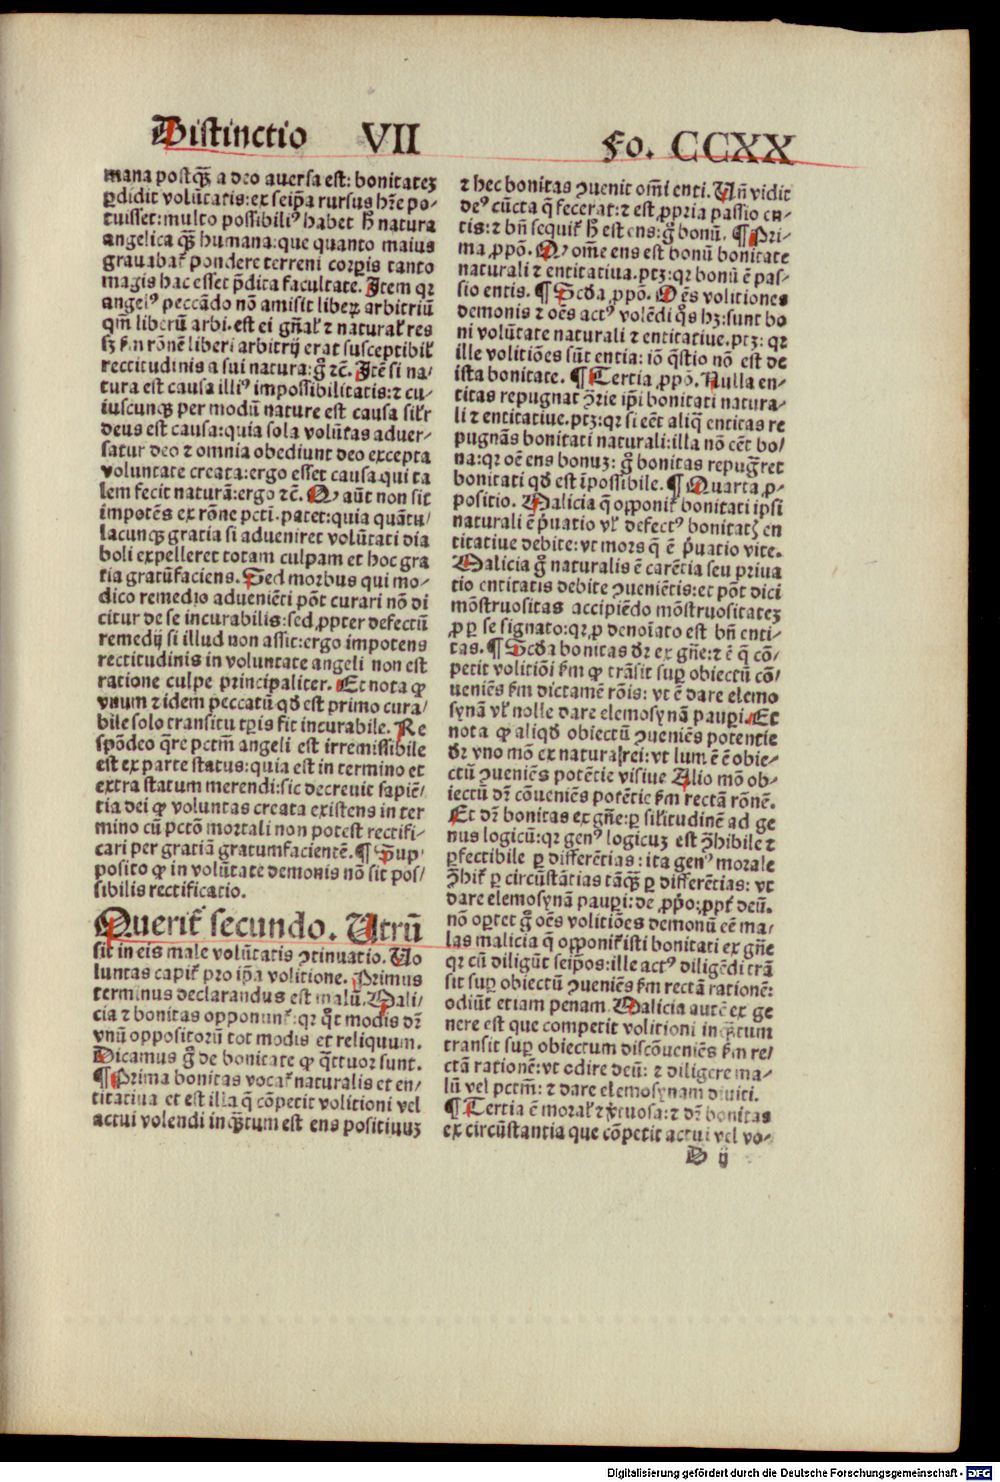 Distinctio VII Fo. CCXX
mana postq̃ȝ a deo auersa est: bonitateȝ
ꝑdidit volũtatis: ex seip̃a rursus hr̃e po-
tuisset: multo possibiliꝰ habet hͦ natura
angelica q̃ȝ humana: que quanto maius
grauabat̃ pondere terreni corꝑis tanto
magis hac esset p̃dita facultate. Item qꝛ
angelꝰ peccãdo nõ amisit liberȝ arbitriũ
qm̃ liberũ arbi. est ei gñal̃ ⁊ natural̃ res
sȝ ẜm rõnẽ liberi arbitrij erat susceptibil̃
rectitudinis a sui natura: g̊ ⁊c̃. Itẽ si na-
tura est causa illiꝰ impossibilitatis: ⁊ cu/
iuscunqȝ per modũ nature est causa sil̃r
deus est causa: quia sola volũtas aduer/
satur deo ⁊ omnia obediunt deo excepta
voluntate creata: ergo esset causa qui ta
lem fecit naturã: ergo ⁊c̃. Q aũt non sit
impotẽs ex rõne pctĩ. patet: quia quãtu/
lacunqȝ gratia si adueniret volũtati dia
boli expelleret totam culpam et hoc gra
tia gratũfaciens. Sed morbus qui mo-
dico remedio adueniẽti põt curari nõ di
citur de se incurabilis: sed ꝓpter defectũ
remedij si illud non assit: ergo impotens
rectitudinis in voluntate angeli non est
ratione culpe principaliter. Et nota ꝙ
vnum ⁊ idem peccatũ qd̃ est primo cura/
bile solo transitu tꝑis fit incurabile. Re
spõdeo q̃re pctm̃ angeli est irremissibile
est ex parte status: quia est in termino et
extra statum merendi: sic decreuit sapiẽ/
tia dei ꝙ voluntas creata existens in ter
mino cũ pctõ mortali non potest rectifi-
cari per gratiã gratumfacientẽ. ¶ Sup/
posito ꝙ in volũtate demonis nõ sit pos/
sibilis rectificatio.
Querit̃ secundo. Utrũ
sit in eis male volũtatis ↄtinuatio. Uo
luntas capit̃ pro ip̃a volitione. Primus
terminus declarandus est malũ. Mali/
cia ⁊ bonitas opponunt̃: qꝛ q̊t modis dr̃
vnũ oppositorũ tot modis et reliquum.
Dicamus g̊ de bonitate ꝙ q̃ttuor sunt.
¶ Prima bonitas vocat̃ naturalis et en/
titatiua et est illa q̃ cõpetit volitioni vel
actui volendi inq̃ȝtum est ens positiuuȝ
⁊ hec bonitas ↄuenit om̃i enti. Uñ vidit
deꝰ cũcta q̃ fecerat: ⁊ est ꝓpria passio en-
tis: ⁊ bñ sequit̃ hͦ est ens: g̊ bonũ. ¶ Pri-
ma ꝓpõ. Q om̃e ens est bonũ bonitate
naturali ⁊ entitatiua. ptȝ: qꝛ bonũ ẽ pas-
sio entis. ¶ Scd̃a ꝓpõ. Oẽs volitiones
demonis ⁊ oẽs actꝰ volẽdi q̊s hȝ: sunt bo
ni volũtate naturali ⁊ entitatiue. ptȝ: qꝛ
ille volitiões sũt entia: iõ q̃stio nõ est de
ista bonitate. ¶ Tertia ꝓpõ. Nulla en-
titas repugnat ↄ̃rie ip̃i bonitati natura-
li ⁊ entitatiue. ptȝ: qꝛ si eẽt aliq̃ entitas re
pugnãs bonitati naturali: illa nõ eẽt bo/
na: qꝛ oẽ ens bonuȝ: g̊ bonitas repug̃ret
bonitati qd̃ est ĩpossibile. ¶ Quarta ꝓ-
positio. Malicia q̃ opponit̃ bonitati ipsi
naturali ẽ p̃uatio vl̃ defectꝰ bonitatȝ en
titatiue debite: vt mors q̃ ẽ p̃uatio vite.
Malicia g̊ naturalis ẽ carẽtia seu priua
tio entitatis debite ↄueniẽtis: et põt dici
mõstruositas accipiẽdo mõstruositateȝ
ꝓ ꝑ se signato: qꝛ ꝓ denoĩato est bñ enti-
tas. ¶ Scd̃a bonitas dr̃ ex gñe: ⁊ ẽ q̃ cõ/
petit volitiõi ẜm ꝙ trãsit suꝑ obiectũ cõ/
ueniẽs ẜm dictamẽ rõis: vt ẽ dare elemo
synã vl̃ nolle dare elemosynã pauꝑi. Et
nota ꝙ aliqd̃ obiectũ ↄueniẽs potentie
dr̃ vno mõ ex natura rei: vt lumẽ ẽ obie-
ctũ ↄueniẽs potẽtie visiue Alio mõ ob-
iectũ dr̃ cõueniẽs potẽtie ẜm rectã rõnẽ.
Et dr̃ bonitas ex gñe: ꝑ sil̃itudinẽ ad ge
nus logicũ: qꝛ genꝰ logicuȝ est ↄ̃hibile ⁊
ꝑfectibile ꝑ differẽtias: ita genꝰ morale
ↄ̃hit̃ ꝑ circũstãtias tãq̃ȝ ꝑ differẽtias: vt
dare elemosynã pauꝑi: de ꝓp̃o: ꝓpt̃ deũ.
nõ oꝑtet g̊ oẽs volitiões demonũ eẽ ma/
las malicia q̃ opponit̃ isti bonitati ex gñe
qꝛ cũ diligũt seip̃os: ille actꝰ diligẽdi trã
sit suꝑ obiectũ ↄueniẽs ẜm rectã rationẽ:
odiũt etiam penam. Malicia autẽ ex ge
nere est que competit volitioni inq̃ȝtum
transit suꝑ obiectum discõueniẽs ẜm re/
ctã rationẽ: vt odire deũ: ⁊ diligere ma-
lũ vel pctm̃: ⁊ dare elemosynam diuiti.
¶ Tertia ẽ moral̃ ⁊ v̾tuosa: ⁊ dr̃ bonitas
ex circũstantia que cõpetit actui vel vo-
D ij
Digitalisierung gefördert durch die Deutsche Forschungsgemeinschaft - DFG